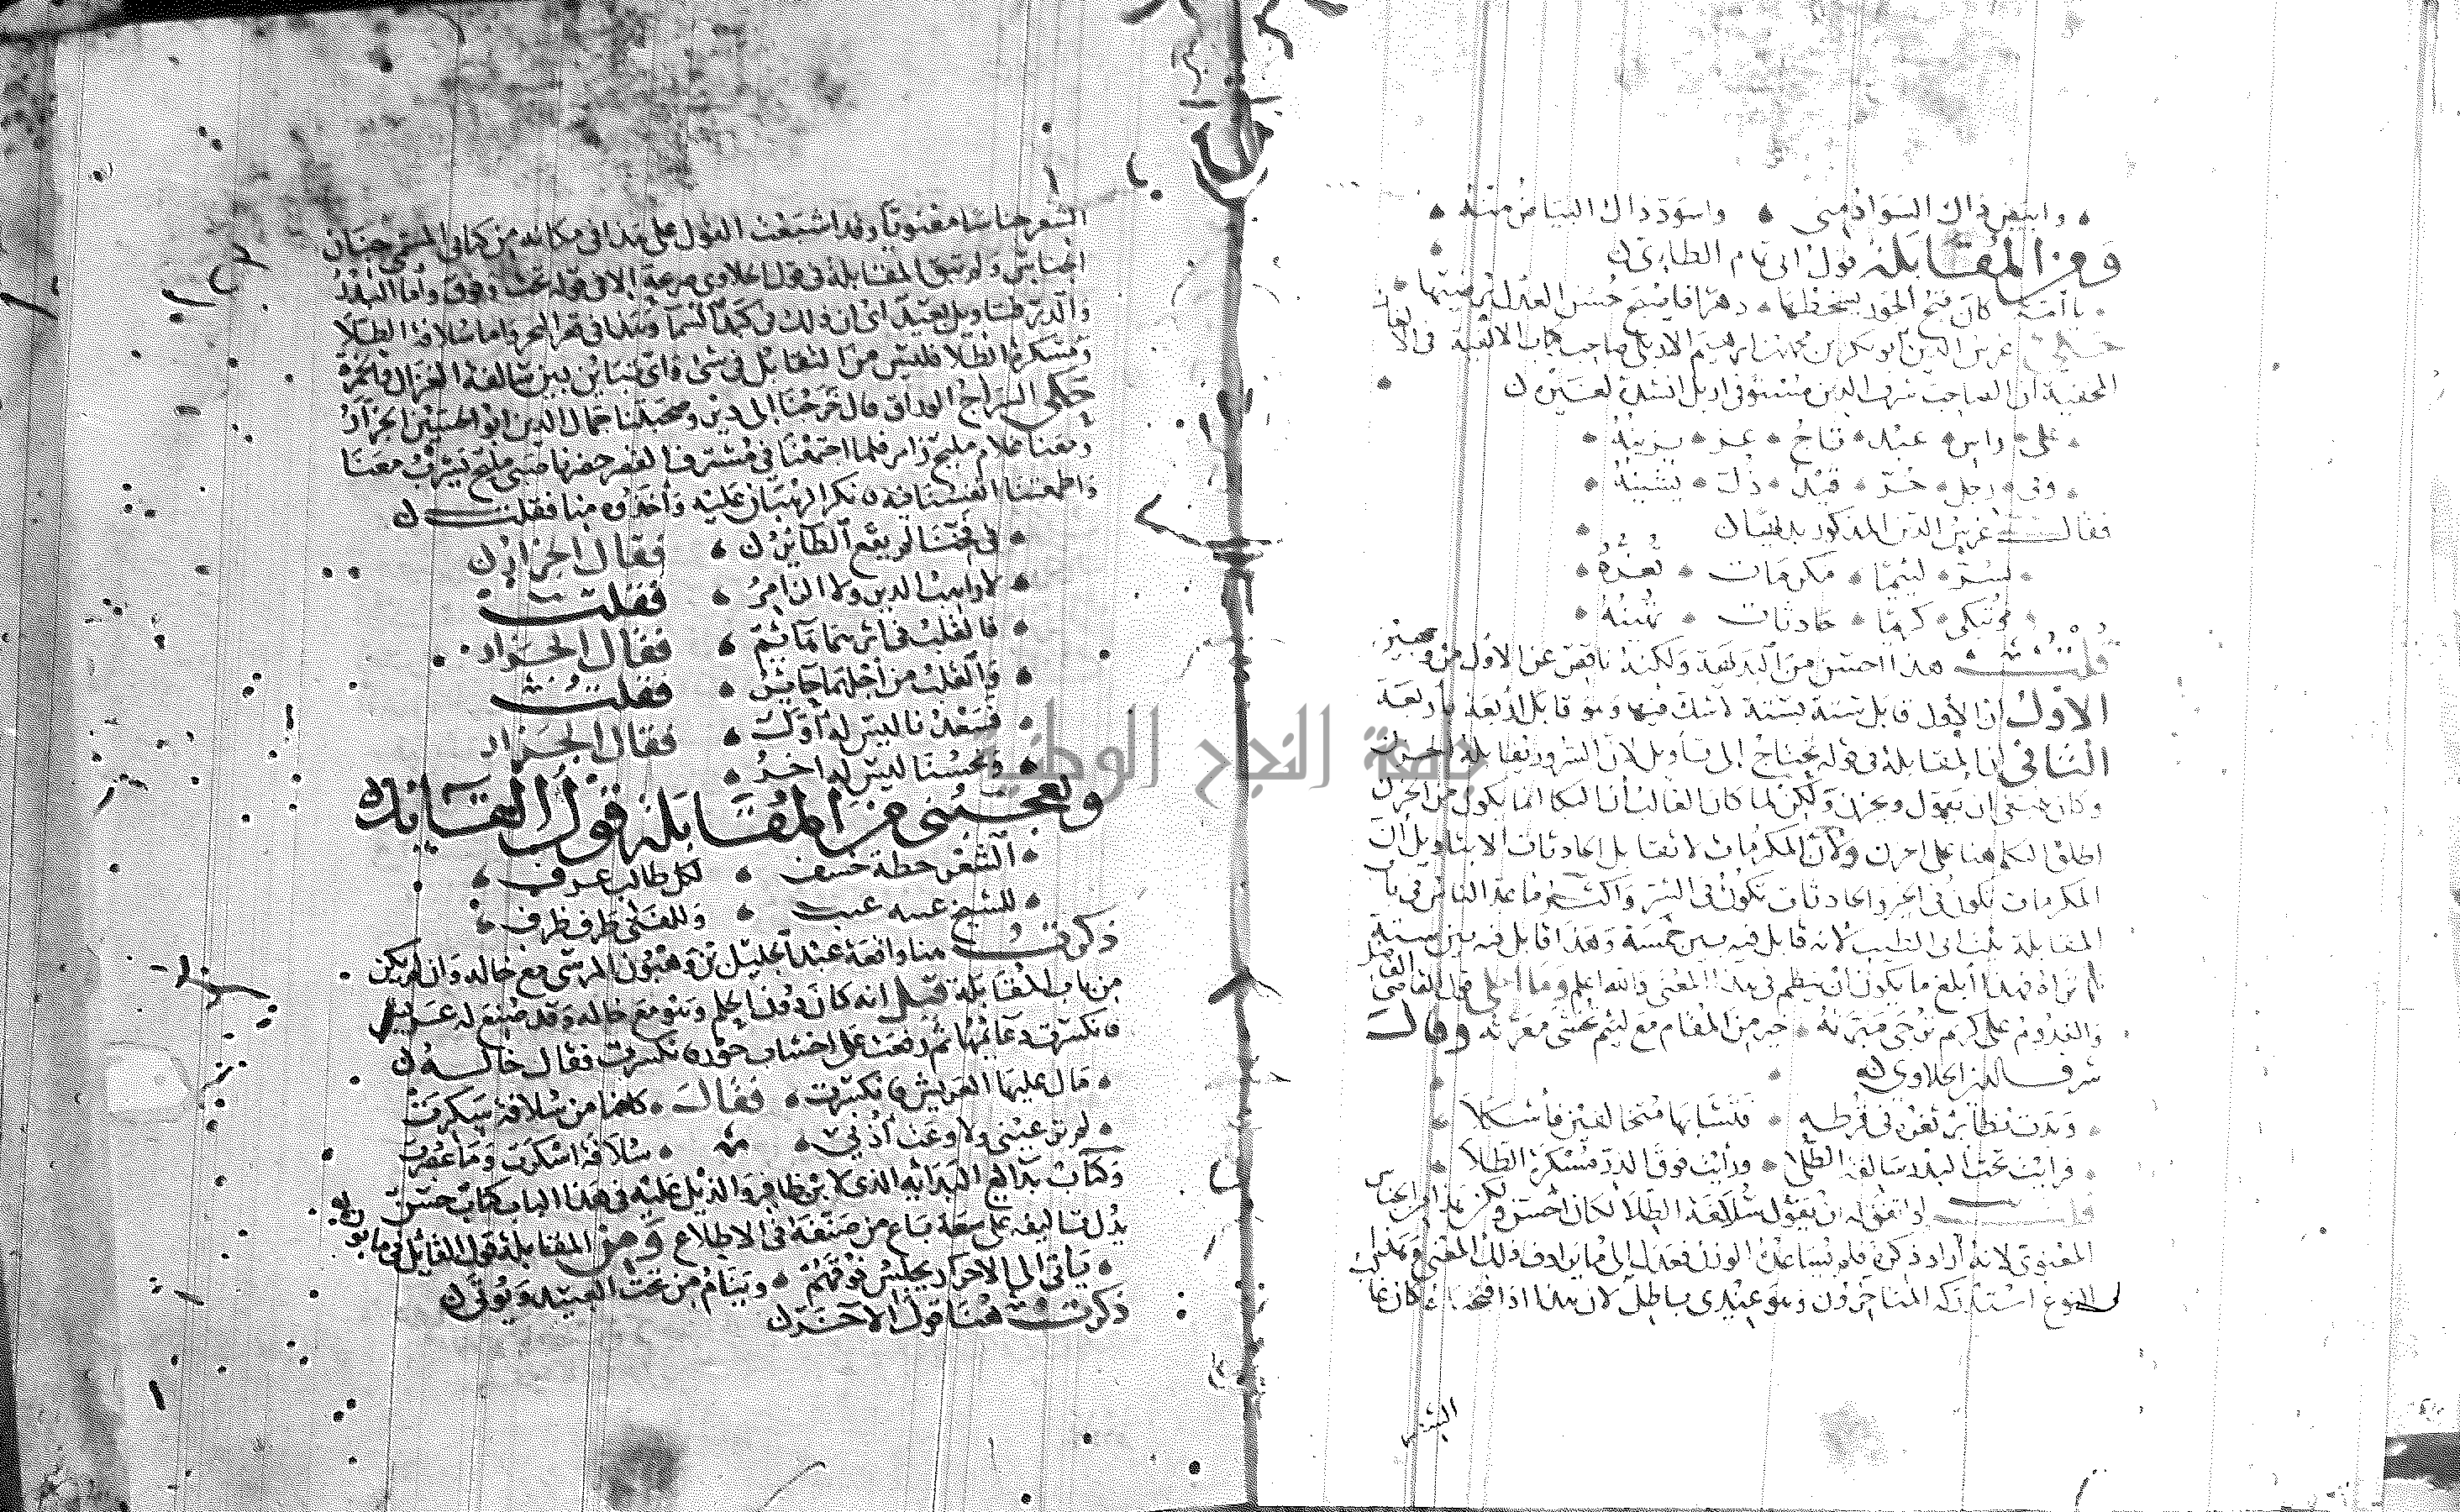 وابيض ذاك السواد مني • واسود ذاك البياض منه
ومن المقابلة قول ابي تمام الطاءي
يا امة كان قبح الجور يسخطها • دهرا فاصبح حسن العدل يرضيها
عز الدين ابو بكر بن الاربلي صاحب كتاب الالفية في الالغاز
المخفية ان الصاحب شرف الدين مستوفي اربل انشده لغيره
على • راس • عبد • تاج • عز • يزينه
وفي • رجل • حر • قيد • ذل • يشينه
فقال عز الدين المذكور بديها
تسر • لئيما • مكرمات • تعزه
وتبكي • كريما • حادثات • تهينه
قلت هذا احسن من البديهة ولكنه ناقص عن الاول من وجهين
الاول ان الاول قابل ستة بستة لا شك فيها وهو قابل اربعة باربعة
الثاني ان المقابلة في قوله تحتاج الى تاويل لان السرور يقابله الحزن
وكان ينبغي ان يقول ويحزن ولكن لما كان الغالب ان البكا انما يكون من الحزن
اطلق البكا هنا على الحزن ولان المكرمات لا تقابل الحادثات الا بتاويل ان
المكرمات تكون في الخير والحادثات تكون في الشر واكثر ما عد الناس في باب
المقابلة بيت ابي الطيب لانه قابل فيه بين خمسة وهذا قابل فيه بين ستة
كما تراه فهذا ابلغ ما يكون ان ينظم في هذا المعنى والله اعلم وما احلى قول القاضي الفاضل
والقدوم على كريم ترجى مبرته • خير من المقام مع لئيم تخشى معرته وقال
شرف الدين الحلاوي
وبدت نظائر ثغره في قرطه • فتشابها متخالفين فاشكلا
فرايت تحت البدر سالفة الطلا • ورايت فوق الدر مسكرة الطلا
قلت لو اتفق له ان يقول سلافة الطلا لكان احسن ولكن هذا من الجناس
المعنوي لانه اراد ذكره فلم يساعده الوزن فعدل الى ما يرادف ذلك المعنى وهذا
النوع استدركه المتاخرون وهو عندي باطل لان هذا اذا فتح
البشر
الشعر جناسا معنويا وقد اشبعت القول على هذا في مكانه من كتابي المسمى جنان
الجناس ولم تبق المقابلة في قول الحلاوي صريحة الا في قوله تحت وفوق واما البدر
والدر فبتاويل بعيد اي ان ذلك في كبد السما وهذا في قعر البحر واما سلافة الطلا
ومسكرة الطلا فليس من التقابل في شي واي تباين بين سالفة الغزال والخمرة
حكى السراج الوراق قال خرجنا الى دير وصحبتنا جمال الدين ابو الحسين الجزار
ومعنا غلام مليح زامر فلما اجتمعنا في مشترف القصر حضرنا صبي مليح يشرب معنا
واطمعتنا انفسنا فيه نكر الرهبان عليه واخذوه منا فقلت
في فخنا لم يقع الطائر فقال الجزار
لا راهب الدير ولا الزامر فقلت
فالقلب في اثرهما هائم فقال الجزار
والقلب من اجلهما حائر فقلت
فسعدنا ليس له اول فقال الجزار
ونحسنا ليس له اخر
ويعجبني من المقابلة قول القائل
الشعر خطة خسف • لكل طالب عرف
للشيخ عيبة عيب • وللفتى ظرف ظرف
ذكرت هنا واقعة عبد الجليل بن وهبون المرسي مع خاله وان لم يكن
من باب المقابلة قيل انه كان دون الحلم وهو مع خاله وقد صنع له عريش
فانكسرت دعائمها ثم رفعت على اخشاب فقال خاله
مال عليها العريش فانكسرت • فقال • كانها من سلافة سكرت
لم تر عيني ولا وعت اذني • منه • سلافة اسكرت وما عصرت
وكتاب بدائع البدائه الذي لابن ظافر والذيل عليه في هذا الباب كتاب حسن
يدل تاليفه على سعة باع من صنفه في الاطلاع ومن المقابلة قول القائل في مابون
ياتي الى الاحرار يجلس فوقهم • وينام من تحت العبيد ويوتى
ذكرت هنا قول الاخر
جامعة النجاح الوطنية